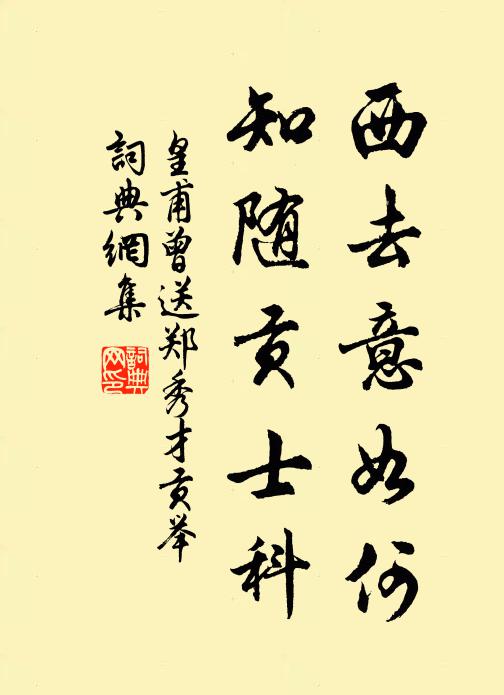 西去意如何
知随贡士科
皇甫曾送郑秀才贡举
詞典網集
詞典
网印